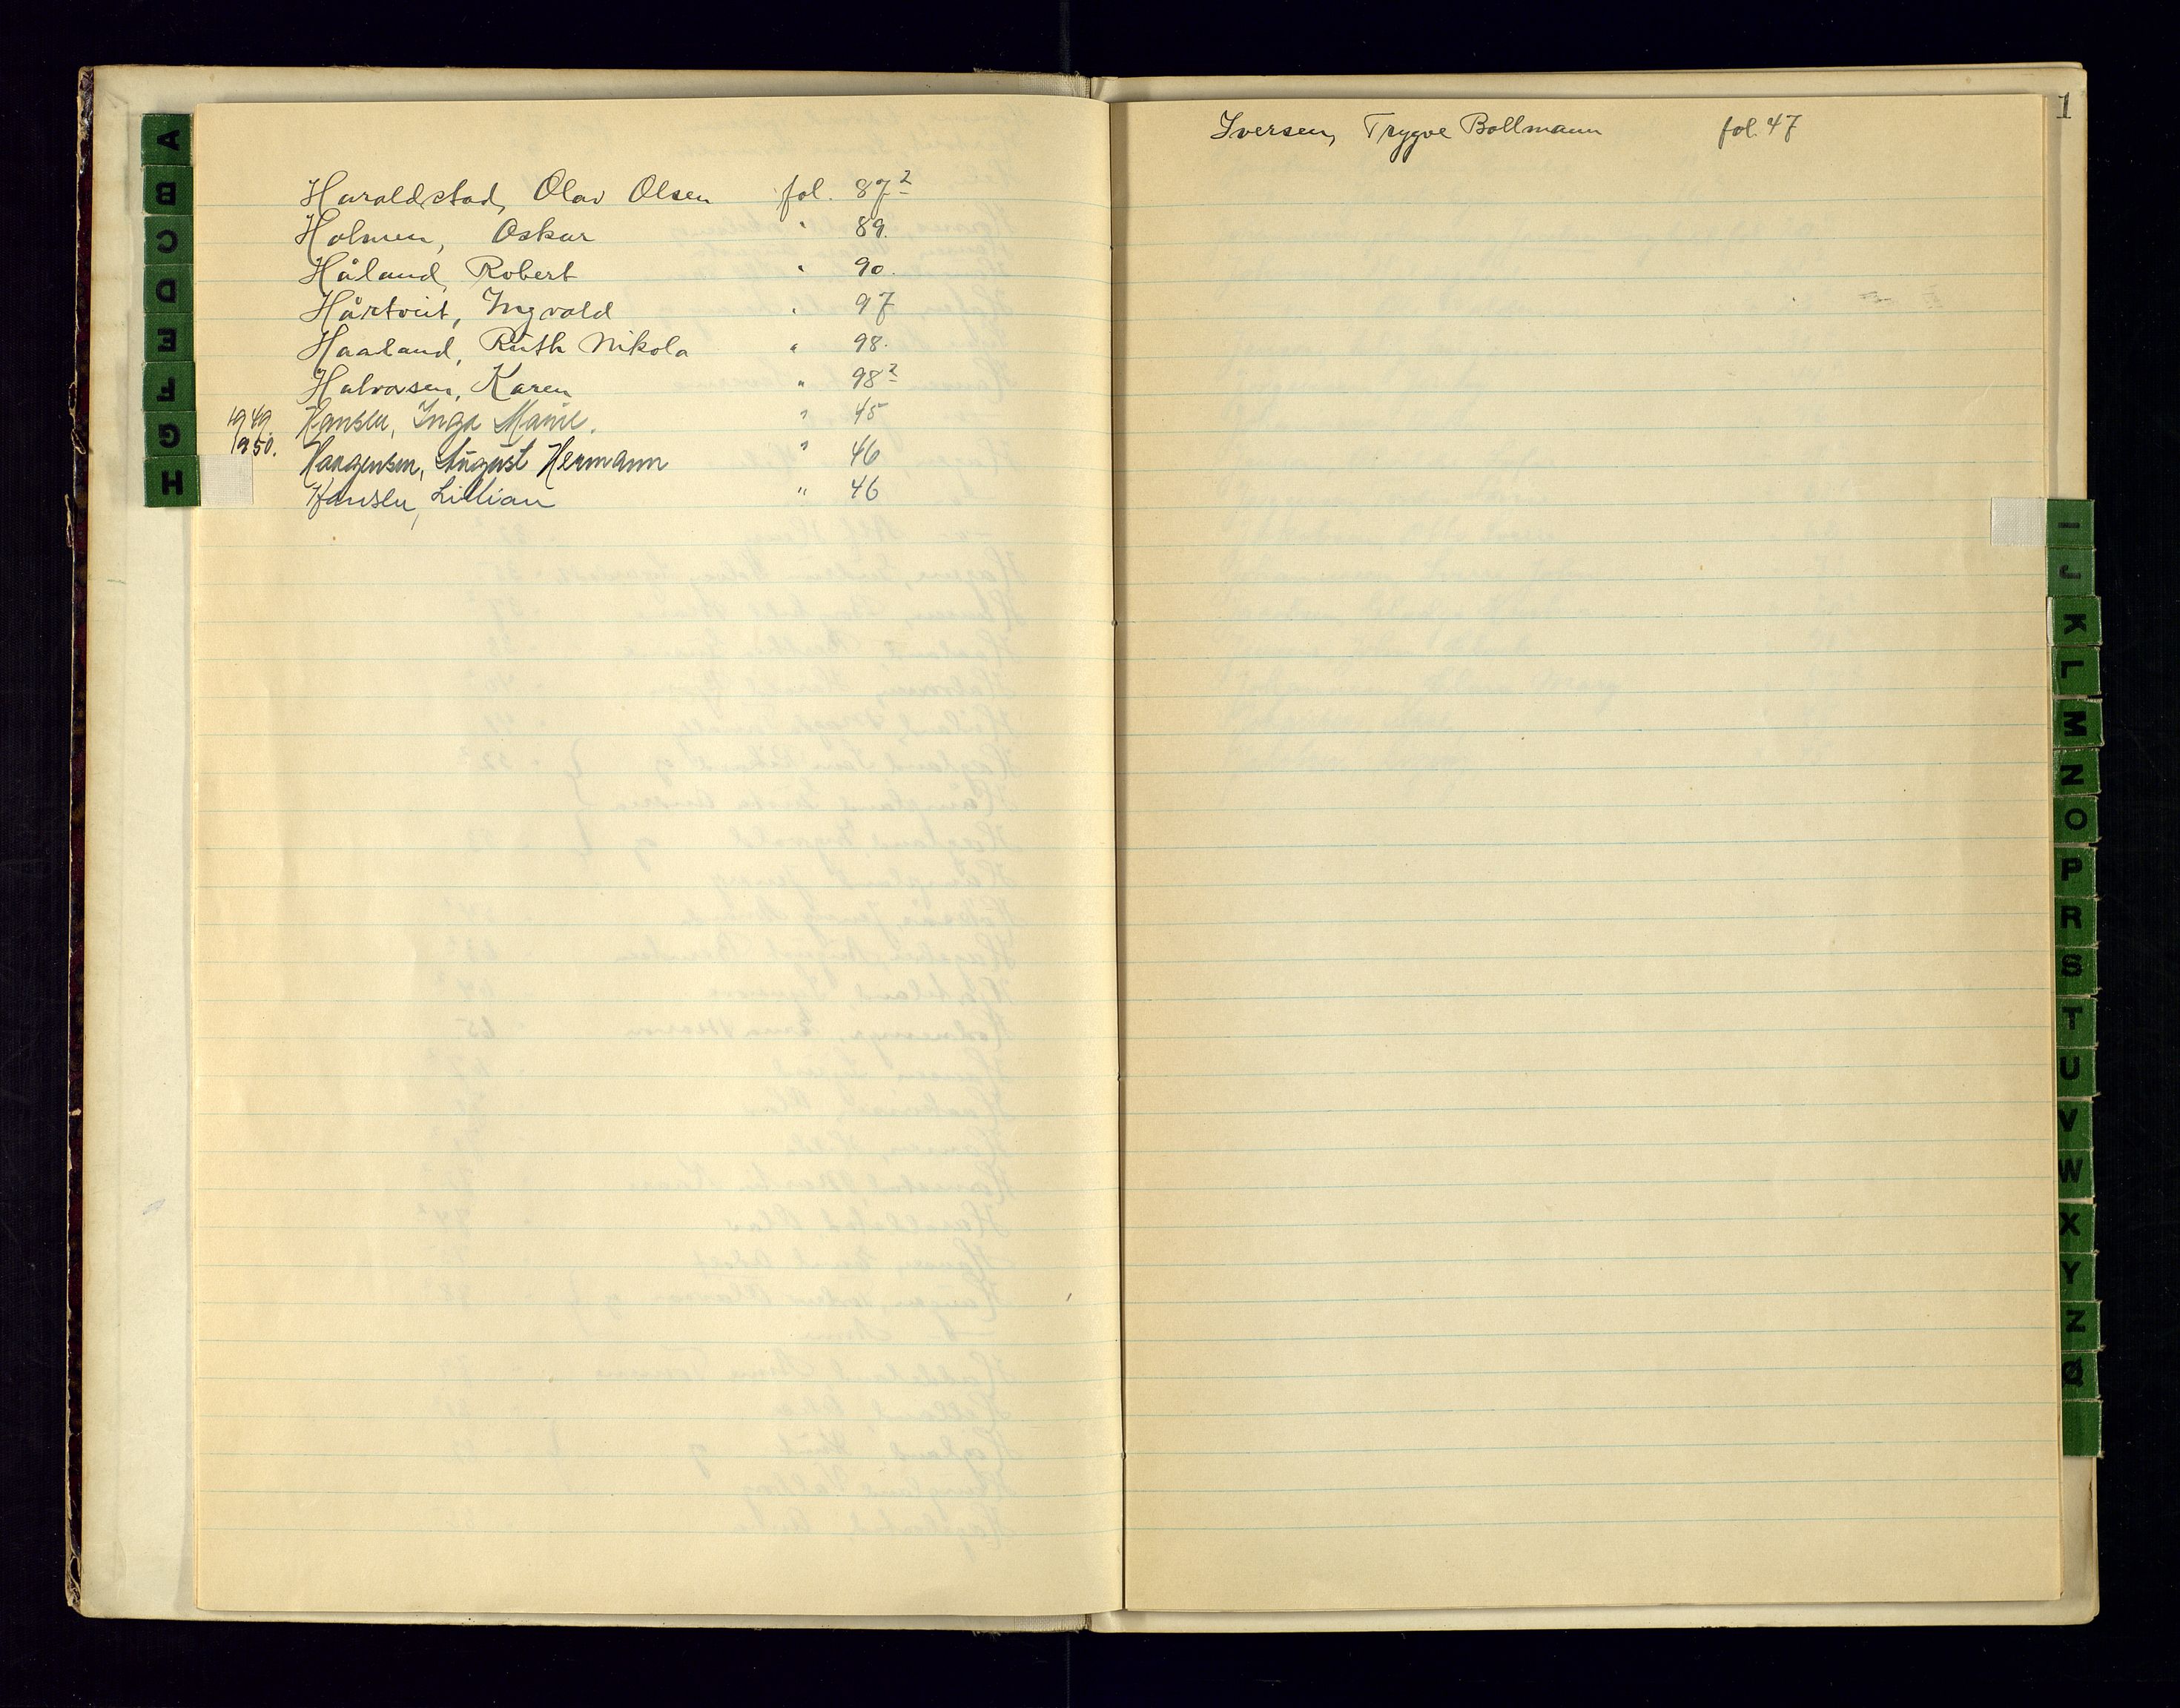 Haraldstad, Olav Olsen fol. 87²
Holmen, Oskar " 89.
Håland, Robert " 90.
Hårtveit, Ingvald " 97
Haaland, Ruth Nikola " 98.
Halvorsen, Karen " 98²
1949. Hansen, Inga Marie. " 45
1950. Haagensen, August Hermann " 46
Hansen, Lillian " 46
A
B
C
D
E
F
G
H
Iversen, Trygve Bollmann fol. 47
1
I
J
K
L
M
N
O
P
R
S
T
U
V
W
X
Y
Z
Ø